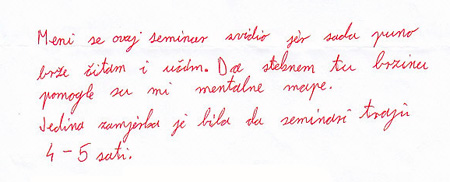 Meni se ovaj seminar svidio jer sada puno
brže čitam i učim. Da steknem tu brzinu
pomogle su mi mentalne mape.
Jedina zamjerka je bila da seminari traju
4 - 5 sati.